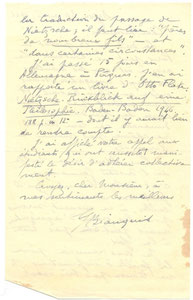 la traduction du passage de
Nietzsche, il faut lire "Pères
de nombreux fils" — et
"dans certaines circonstances".
J'ai passé 15 jours en
Allemagne à Pâques, j'en ai
rapporté un livre d'Otto Flake,
Nietzsche. Rückblick auf eine
Philosophie, Baden-Baden 1946,
188 p. in 12° — dont il y aurait lieu
de rendre compte.
J'ai affiché votre appel aux
étudiants, qui ont aussitôt mani-
festé le désir d'adhérer collective-
ment.
Croyez, cher Monsieur, à
mes sentiments les meilleurs
G Bianquis